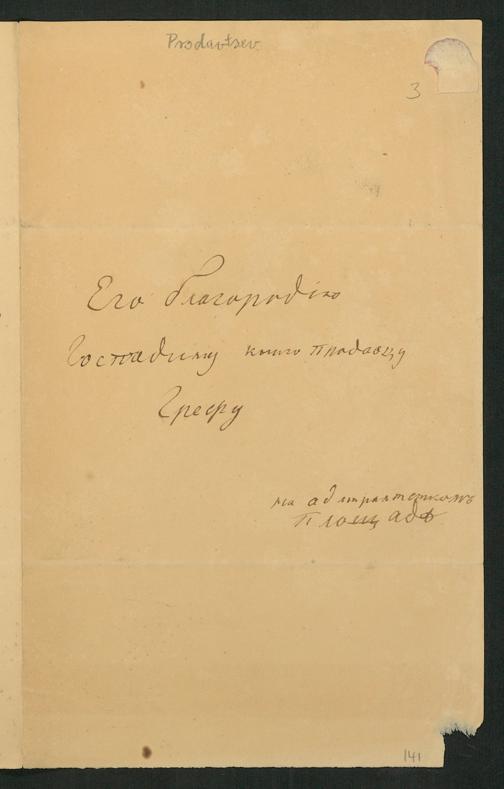 Prodavtsev
3
Его благородію
Господину книго продавцу
Грефу
на адмралтетском
площадѣ
141